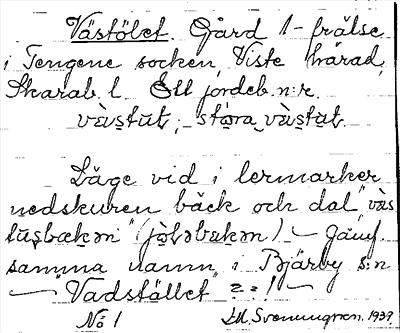 Västölet. Gård 1 - frälse
i Tengene socken, Viste härad,
Skarab. l. Ett jordeb. n:r.
vàstu̇t; stóra vàstu̇t.
Läge vid i lermarker
nedskuren bäck och dal "väs
(jò̩ləbækən) - Jämf.
samma namn i Bjärby s:n
- "Vadstället" 2 = 1! -
No 1 Svenungsson. 1939